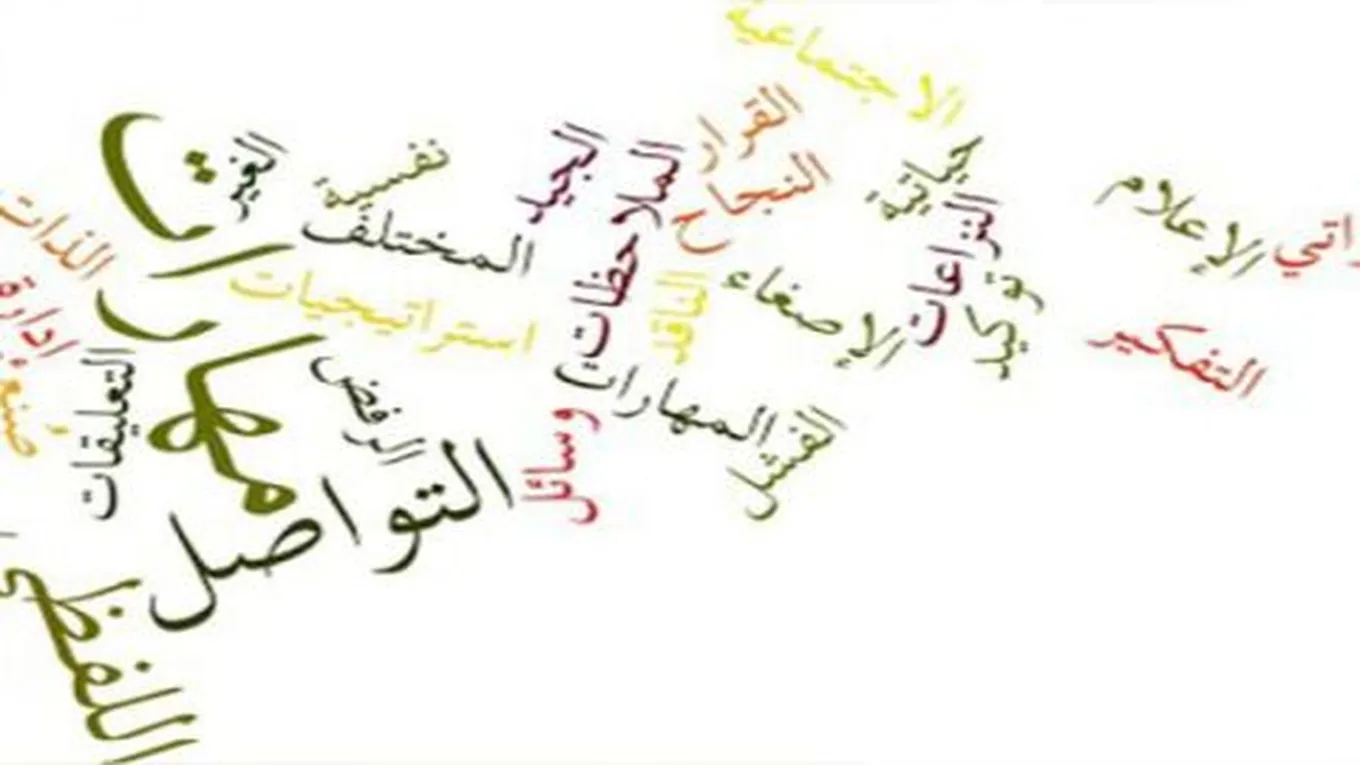 الاجتماعية
القرار
النجاح
حياتية
الجيد
الملاحظات
نفسية
الغير
المختلف
الإعلام
النزاعات
توكيد
الإصغاء
الناقد
استراتيجيات
الذات
إدارة
التفكير
مهارات
التعليقات
الرفض
المهارات
وسائل
الفشل
التواصل
اللفظي